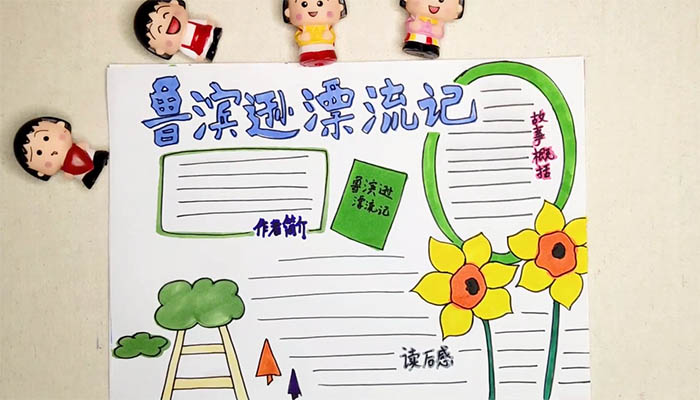 鲁滨逊漂流记
故事概括
鲁滨逊
漂流记
作者简介
读后感